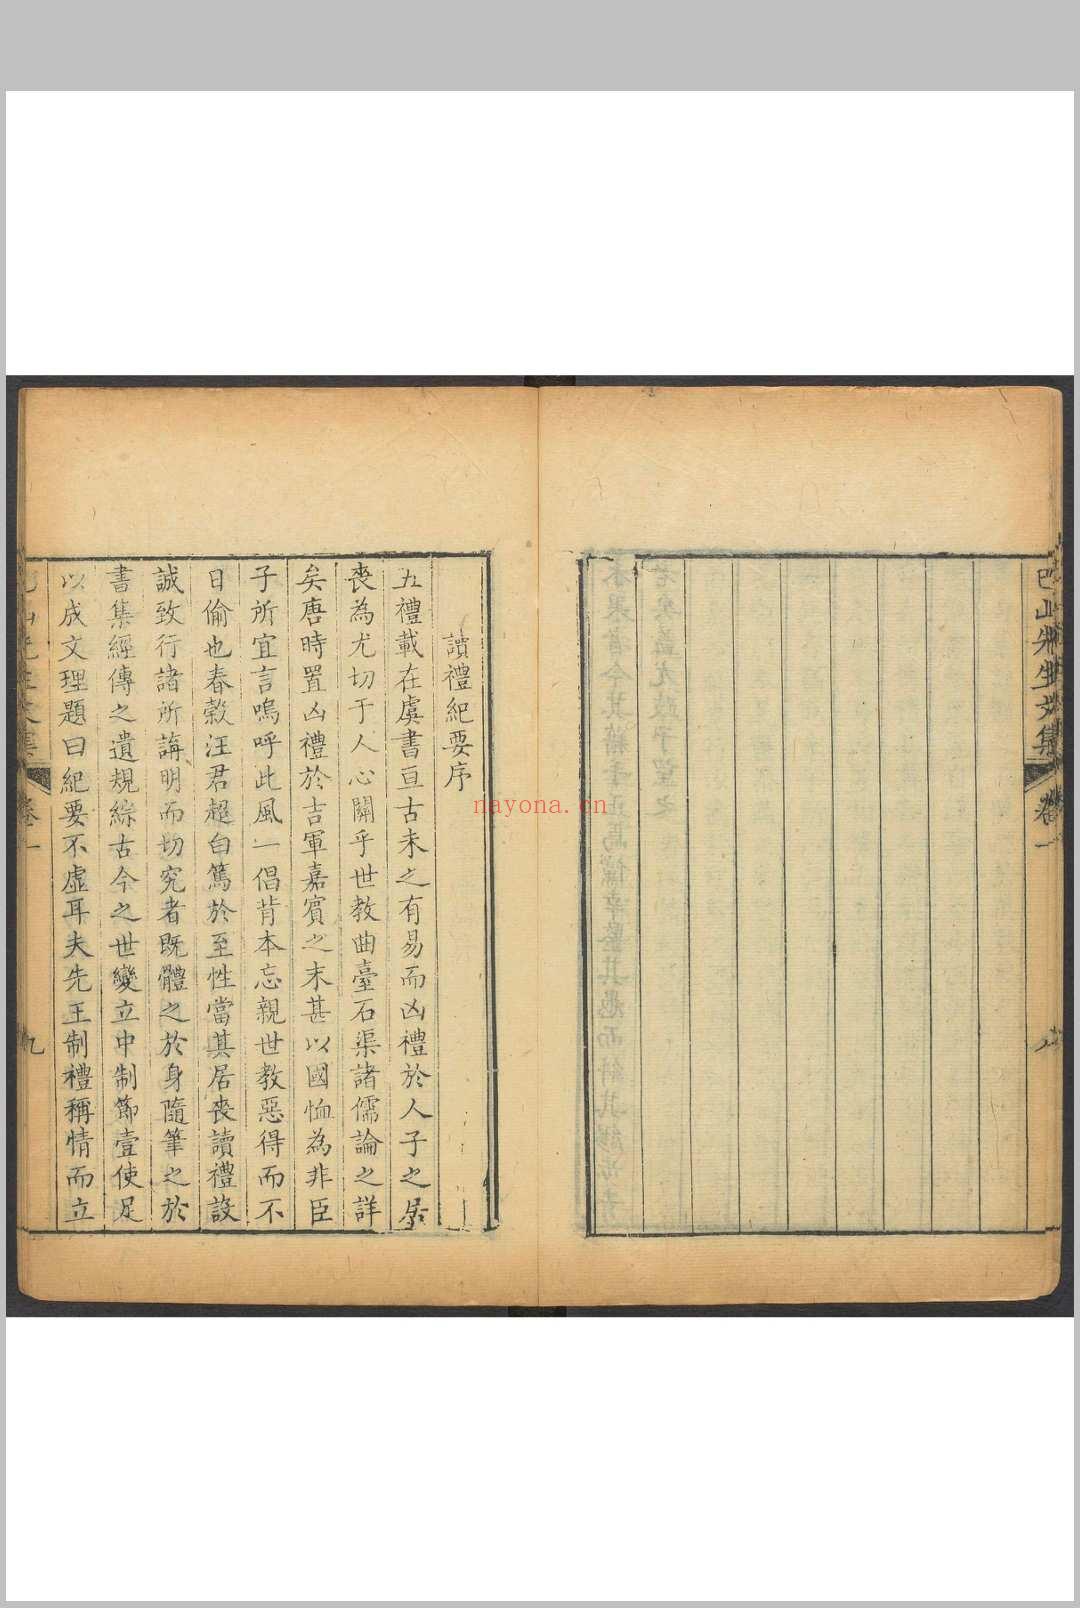 巴山先生文集
卷一
讀禮紀要序
五禮載在虞書亘古未之有易而凶禮於人子之居
喪為尤切于人心關乎世教曲臺石渠諸儒論之詳
矣唐時置凶禮於吉軍嘉賓之末甚以國恤為非臣
子所宜言嗚呼此風一倡背本忘親世教惡得而不
日偷也春穀汪君超白篤於至性當其居喪讀禮設
誠致行諸所講明而切究者既體之於身隨筆之於
書集經傳之遺規綜古今之世變立中制節壹使足
以成文理題曰紀要不虛耳夫先王制禮稱情而立
卷一
九
nayona.cn